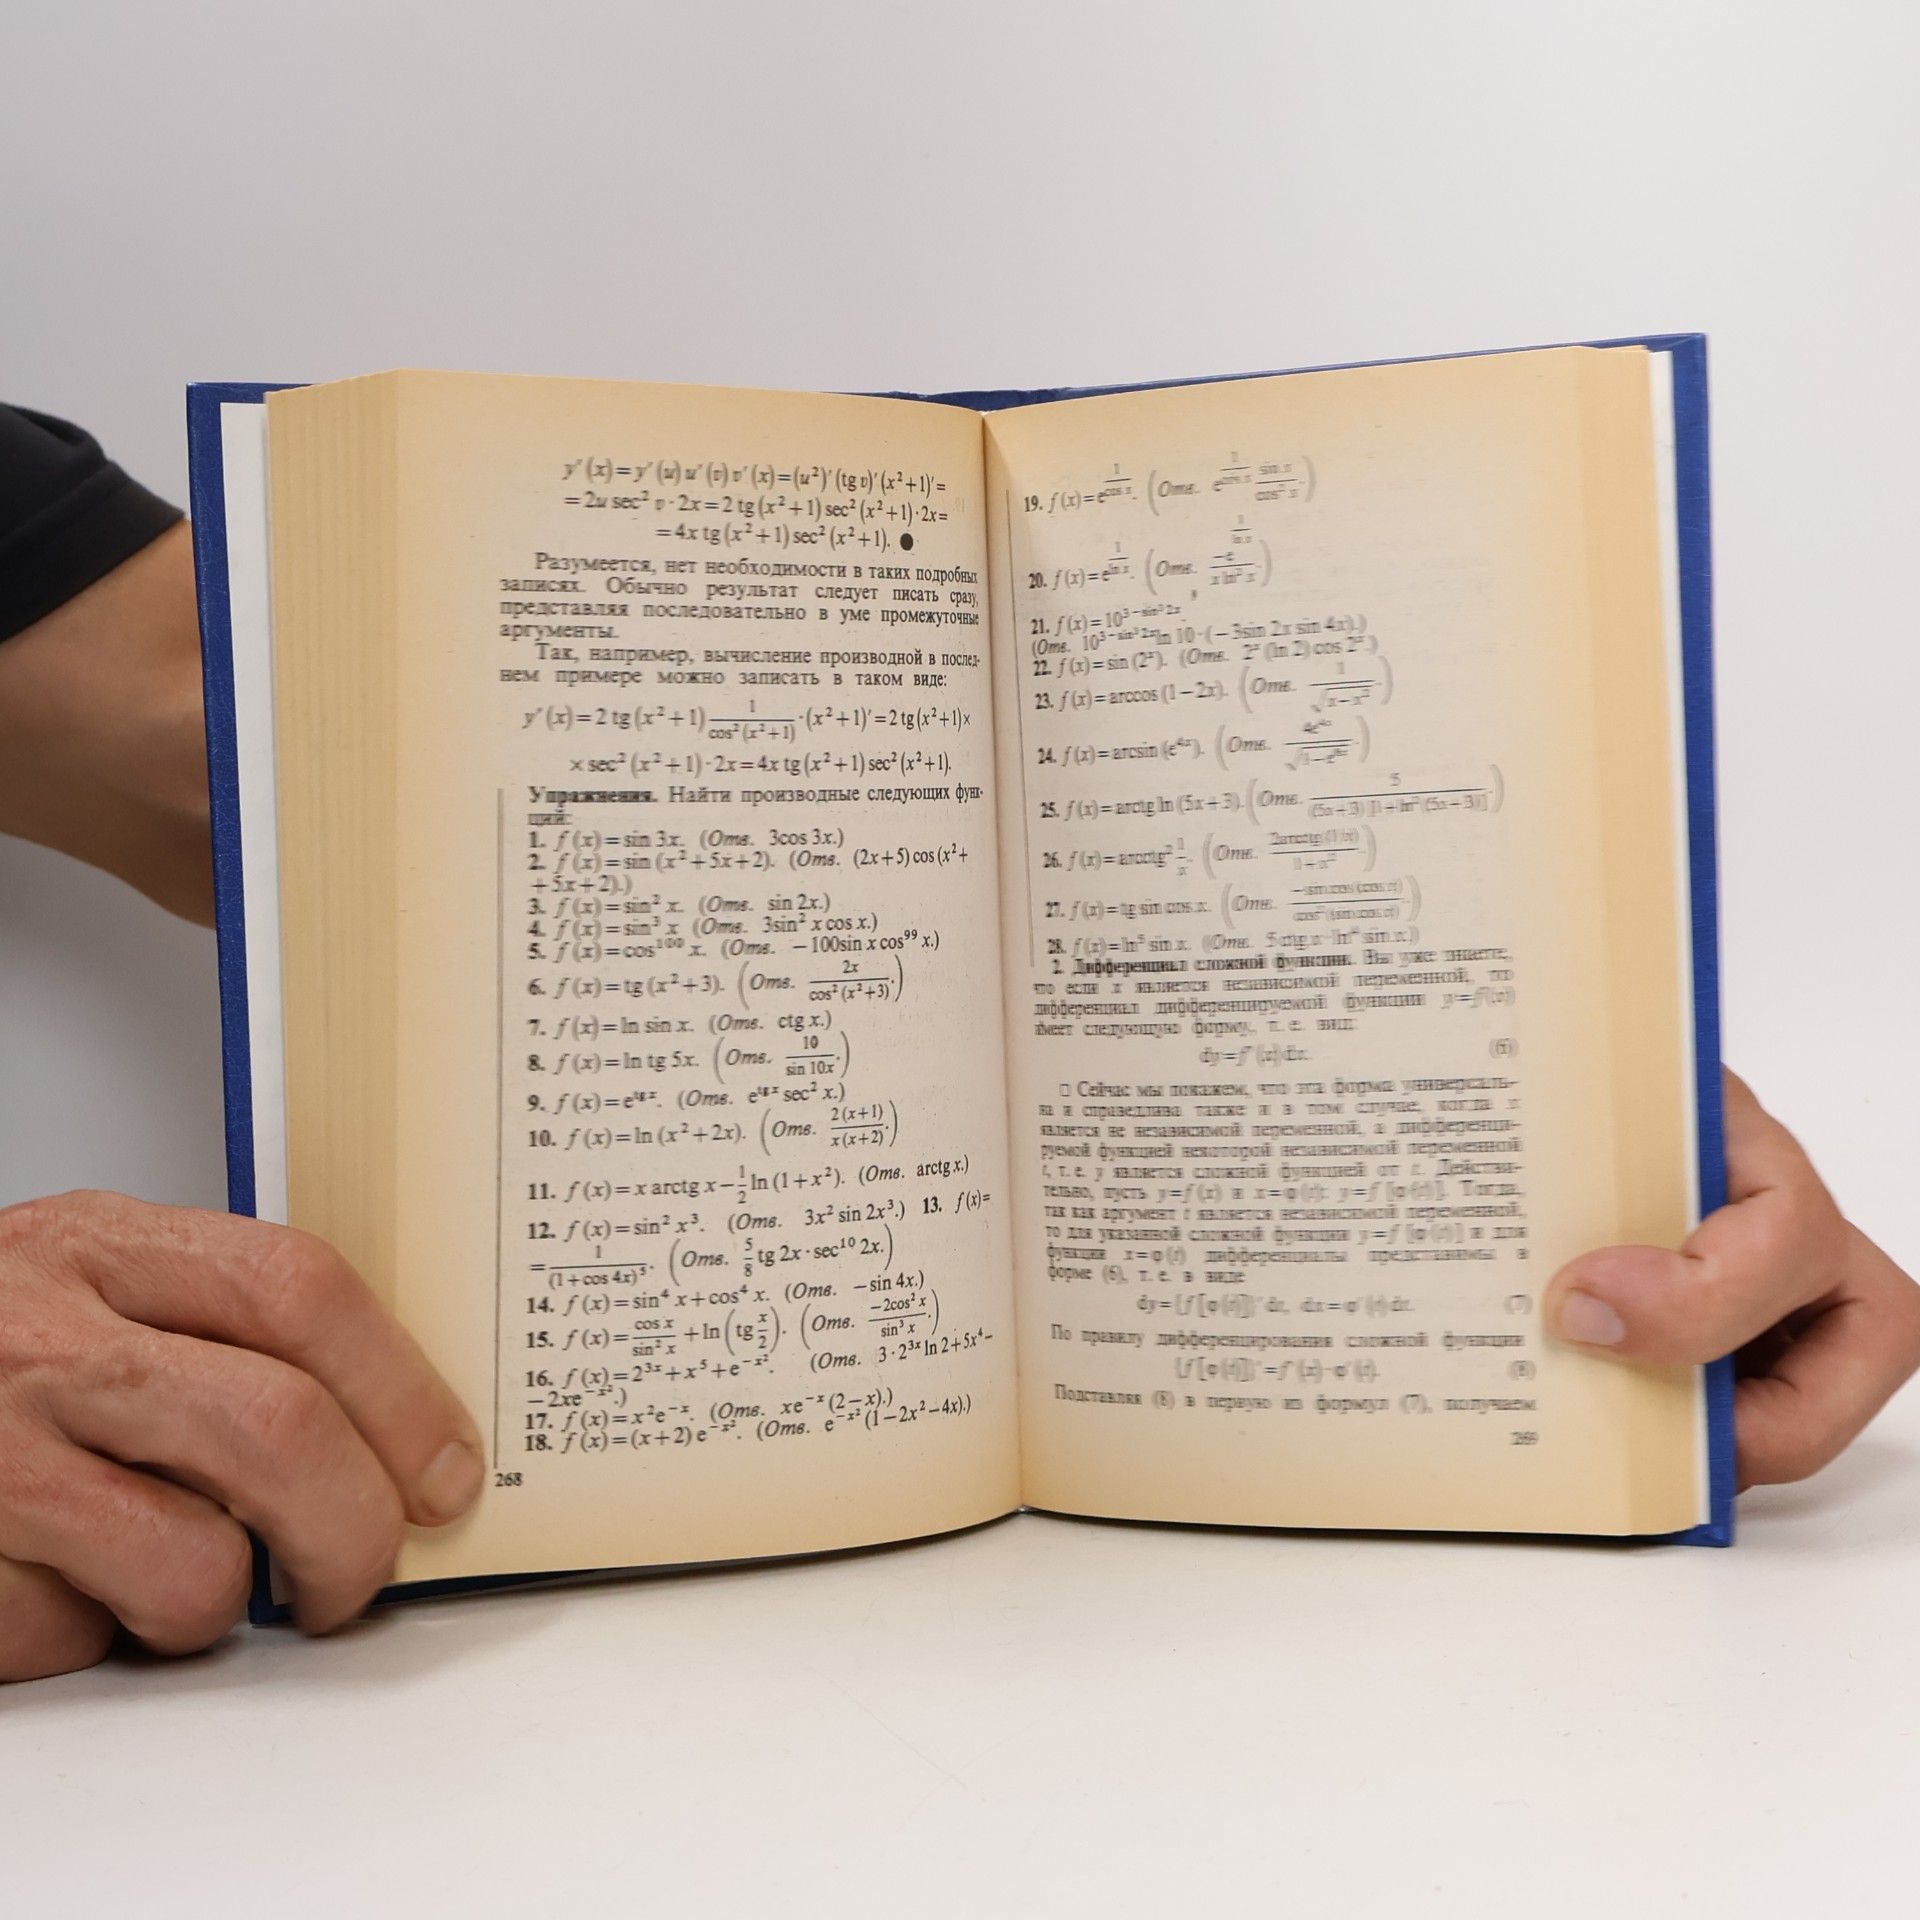 y′(x)=y′(u)u′(v)v′(x)=(u²)′(tg v)′(x²+1)′=
=2u sec² v·2x=2 tg(x²+1) sec²(x²+1)·2x=
=4x tg(x²+1) sec²(x²+1). ●
Разумеется, нет необходимости в таких подробных
записях. Обычно результат следует писать сразу,
представляя последовательно в уме промежуточные
аргументы.
Так, например, вычисление производной в послед-
нем примере можно записать в таком виде:
y′(x)=2 tg(x²+1) 1/cos²(x²+1) ·(x²+1)′=2 tg(x²+1)×
× sec²(x²+1)·2x=4x tg(x²+1) sec²(x²+1).
Упражнения. Найти производные следующих функ-
ций:
1. f(x)=sin 3x. (Отв. 3cos 3x.)
2. f(x)=sin (x²+5x+2). (Отв. (2x+5) cos (x²+
+5x+2).)
3. f(x)=sin² x. (Отв. sin 2x.)
4. f(x)=sin³ x (Отв. 3sin² x cos x.)
5. f(x)=cos¹⁰⁰ x. (Отв. −100sin x cos⁹⁹ x.)
6. f(x)=tg (x²+3). (Отв. 2x/cos²(x²+3).)
7. f(x)=ln sin x. (Отв. ctg x.)
8. f(x)=ln tg 5x. (Отв. 10/sin 10x.)
9. f(x)=e^{tg x}. (Отв. e^{tg x} sec² x.)
10. f(x)=ln (x²+2x). (Отв. 2(x+1)/x(x+2).)
11. f(x)=x arctg x−1/2 ln (1+x²). (Отв. arctg x.)
12. f(x)=sin² x³. (Отв. 3x² sin 2x³.) 13. f(x)=
=1/(1+cos 4x)⁵. (Отв. 5/8 tg 2x·sec¹⁰ 2x.)
14. f(x)=sin⁴ x+cos⁴ x. (Отв. −sin 4x.)
15. f(x)=cos x/sin² x +ln (tg x/2). (Отв. −2cos² x/sin³ x.)
16. f(x)=2^{3x}+x⁵+e^{−x²}. (Отв. 3·2^{3x} ln 2+5x⁴−
−2xe^{−x²}.)
17. f(x)=x²e^{−x}. (Отв. xe^{−x}(2−x).)
18. f(x)=(x+2) e^{−x²}. (Отв. e^{−x²}(1−2x²−4x).)
268
19. f(x)=e^{1/cos x}. (Отв. e^{1/cos x} sin x/cos² x.)
20. f(x)=e^{1/ln x}. (Отв. −e^{1/ln x}/x ln² x.)
21. f(x)=10^{3−sin³ 2x}.
(Отв. 10^{3−sin³ 2x} ln 10·(−3sin 2x sin 4x).)
22. f(x)=sin (2ˣ). (Отв. 2ˣ (ln 2) cos 2ˣ.)
23. f(x)=arccos (1−2x). (Отв. 1/√(x−x²).)
24. f(x)=arcsin (e^{4x}). (Отв. 4e^{4x}/√(1−e^{8x}).)
25. f(x)=arctg ln (5x+3). (Отв. 5/(5x+3)[1+ln²(5x+3)].)
26. f(x)=arcctg² 1/x. (Отв. 2arcctg(1/x)/1+x².)
27. f(x)=tg sin cos x. (Отв. −sin x cos (cos x)/cos²(sin cos x).)
28. f(x)=ln⁵ sin x. (Отв. 5 ctg x·ln⁴ sin x.)
2. Дифференциал сложной функции. Вы уже знаете,
что если x является независимой переменной, то
дифференциал дифференцируемой функции y=f(x)
имеет следующую форму, т. е. вид:
dy=f′(x) dx. (6)
□ Сейчас мы покажем, что эта форма универсаль-
на и справедлива также и в том случае, когда x
является не независимой переменной, а дифференци-
руемой функцией некоторой независимой переменной
t, т. е. y является сложной функцией от t. Действи-
тельно, пусть y=f(x) и x=φ(t): y=f[φ(t)]. Тогда,
так как аргумент t является независимой переменной,
то для указанной сложной функции y=f[φ(t)] и для
функции x=φ(t) дифференциалы представимы в
форме (6), т. е. в виде
dy={f[φ(t)]}′dt, dx=φ′(t) dt. (7)
По правилу дифференцирования сложной функции
{f[φ(t)]}′=f′(x)·φ′(t). (8)
Подставляя (8) в первую из формул (7), получаем
269